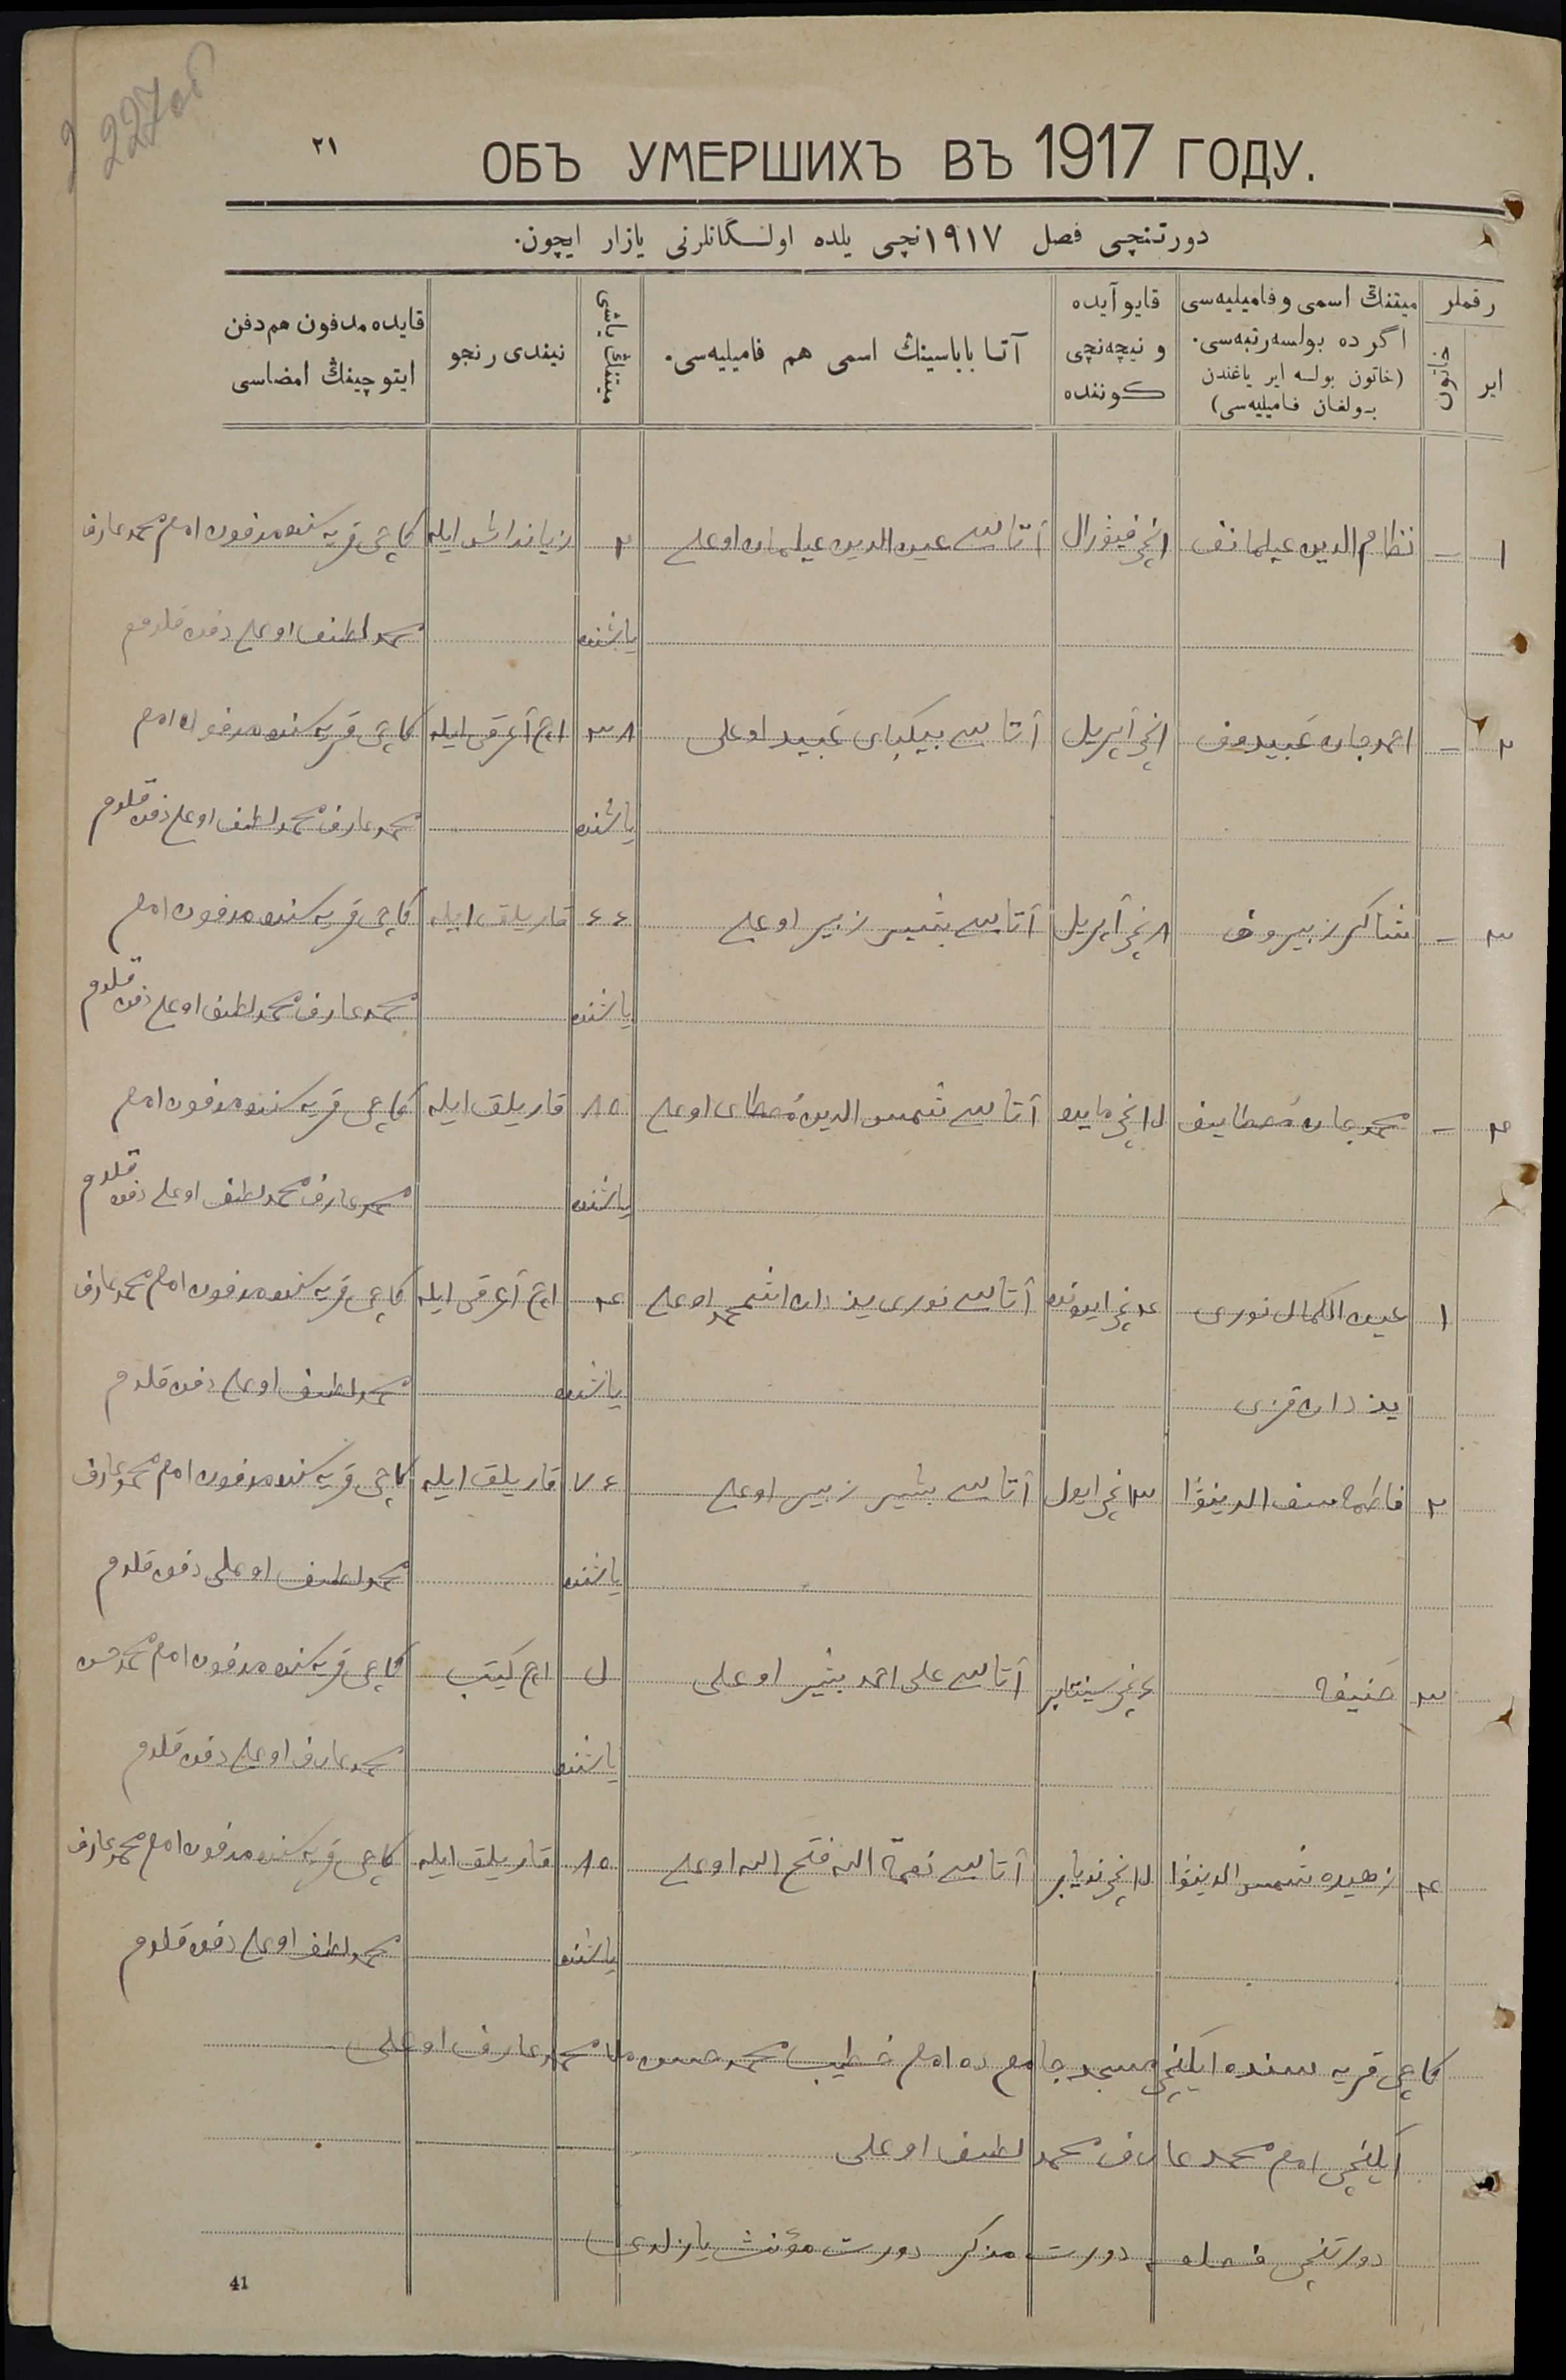 227об
٢١
ОБЪ УМЕРШИХЪ ВЪ 1917 ГОДУ.
دورتنچی فصل ١٩١٧نچی یلده اولـگانلرنی یازار ایچون.
رقملر
ایر
خاتون
میتنڭ اسمی و فامیلیه‌سی
اگر ده بولسه رتبه‌سی.
(خاتون بولسه ایر یاغندن
بـولغان فـامیلیه‌سی)
قایو آیده
و نیچه‌نچی
کوننده
آتـا بابـاسینڭ اسمی هم فامیلیه‌سی.
میتنڭ یاشی
نیندی رنجو
قایده مدفون هم دفن
ایتوچینڭ امضاسی
١ – نظام الدین عیلمانف ١نچی فیورال آتاسی عین الدین عیلمان اوغلی ٢ زیانداش ایله کاچی قریه سنده مدفون امام محمد عارف
یاشنده محمد لطیف اوغلی دفن قلدم
٢ – احمدجان عبیدوف ١نچی آپریل آتاسی بیکبای عبید اوغلی ٣٨ اچ آغرقی ایله کاچی قریه سنده مدفون امام
یاشنده محمد عارف محمد لطیف اوغلی دفن قلدم
٣ – شاکر زبیروف ٨نچی آپریل آتاسی بشیر زبیر اوغلی ٦٤ قاریلق ایله کاچی قریه سنده مدفون امام
یاشنده محمد عارف محمد لطیف اوغلی دفن قلدم
٤ – محمدجان معطایف ١٥نچی مایده آتاسی شمس الدین معطای اوغلی ٨٥ قاریلق ایله کاچی قریه سنده مدفون امام
یاشنده محمد عارف محمد لطیف اوغلی دفن قلدم
١ عین الکمال نوری ٤نچی ایونده آتاسی نوری یزدان اشمحمد اوغلی ٤ اچ آغرقی ایله کاچی قریه سنده مدفون امام محمد عارف
یزدان قزی یاشنده محمد لطیف اوغلی دفن قلدم
٢ فاطمه سیف الدینوا ١٣نچی ایول آتاسی بشیر زبیر اوغلی ٧٤ قاریلق ایله کاچی قریه سنده مدفون امام محمد عارف
یاشنده محمد لطیف اوغلی دفن قلدم
٣ حنیفه ٤نچی سینتابر آتاسی علی احمد بشیر اوغلی اچ کیتب کاچی قریه سنده مدفون امام محمد حسن
یاشنده محمد عارف اوغلی دفن قلدم
٤ زهیده شمس الدینوا ١٥نچی نویابر آتاسی نعمة الله فتح الله اوغلی ٨٥ قاریلق ایله کاچی قریه سنده مدفون امام محمد عارف
یاشنده محمد لطیف اوغلی دفن قلدم
کاچی قریه سنده ایکنچی مسجد جامع ده امام خطیب محمد حسن ملا محمد عارف اوغلی
ایکنچی امام محمد عارف محمد لطیف اوغلی
دورتنچی فصلده دورت مذکر دورت مؤنث یازلدی
41